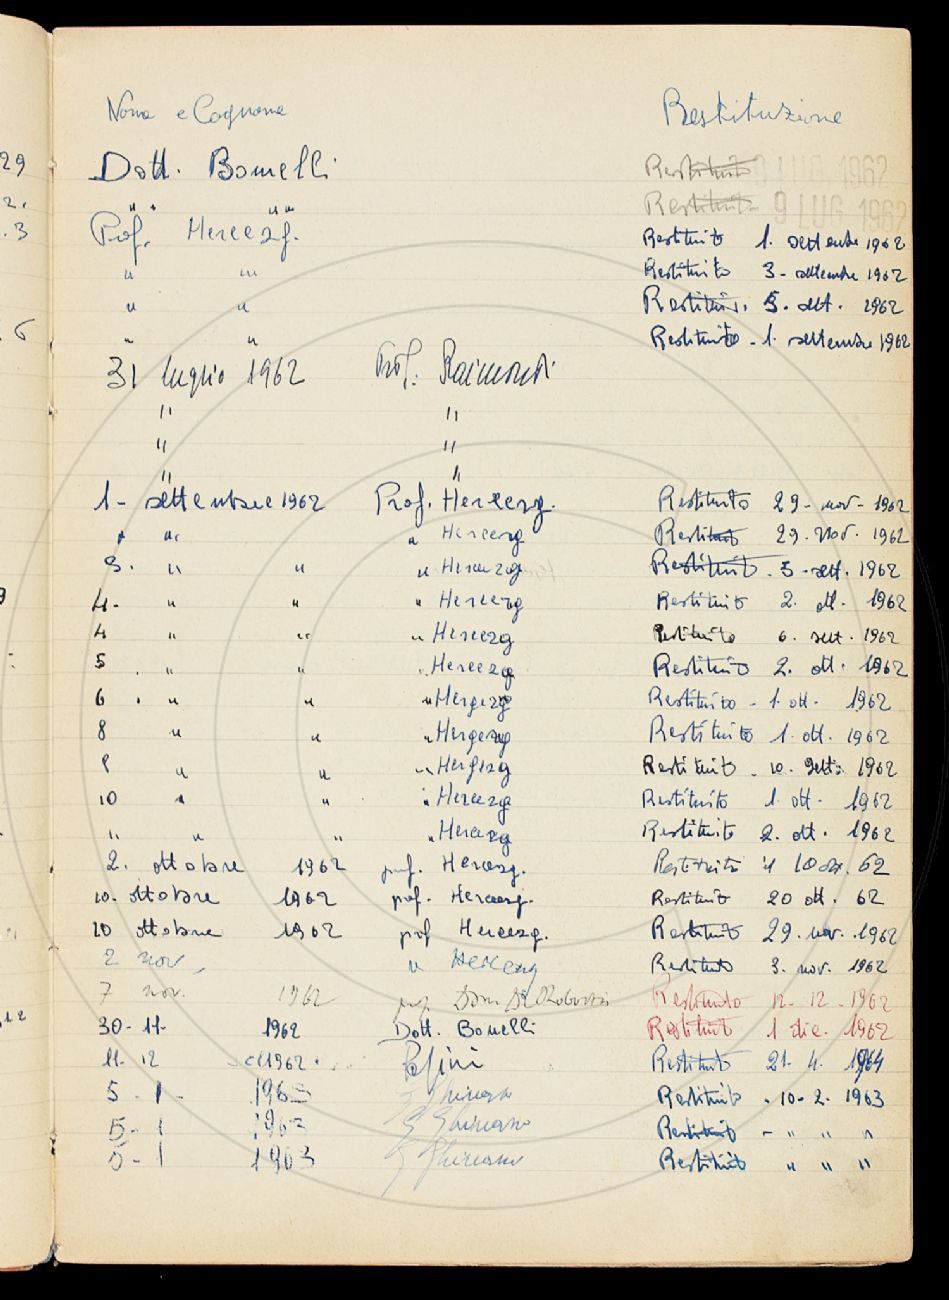 Nome e Cognome Restituzione
29 Dott. Bonelli Restituito 9 LUG 1962
2. " " " " Restituito 9 LUG 1962
.3 Prof. Herczeg. Restituito 1. settembre 1962
" " Restituito 3 - settembre 1962
" " Restituito. 5. sett. 1962
6 " " Restituito - 1. settembre 1962
31 luglio 1962 Prof. Raimondi
" "
" "
" "
1 - settembre 1962 Prof. Herczeg. Restituito 29 - nov - 1962
" " " Herczeg Restituito 29. nov. 1962
3. " " " Herczeg Restituito - 5 - sett. 1962
4 - " " " Herczeg Restituito 2. ott. 1962
4 " " " Herczeg Restituito 6. sett. 1962
5 . " " " Herczeg Restituito 2. ott. 1962
6 . " " " Herczeg Restituito - 1. ott. 1962
8 " " " Herczeg Restituito 1. ott. 1962
" " " Herczeg Restituito - 10. sett. 1962
10 " " " Herczeg Restituito 1. ott. 1962
" " " " Herczeg Restituito 2. ott. 1962
2. ottobre 1962 prof. Herczeg. Restituito il 10 62
10. ottobre 1962 prof. Herczeg. Restituito 20 ott. 62
20 ottobre 1962 prof Herczeg. Restituito 29. nov. 1962
2 nov. " Herczeg Restituito 3. nov. 1962
7 nov. 1962 prof. Restituito 12 - 12 - 1962
12 30 - 11 - 1962 Dott. Bonelli Restituito 1 dic. 1962
11. 12 1962 . Restituito 21. 4. 1964
5 - 1 - 1963 Restituito - 10 - 2. 1963
5 - 1 1963 Restituito - " " "
5 - 1 1963 Restituito " " "